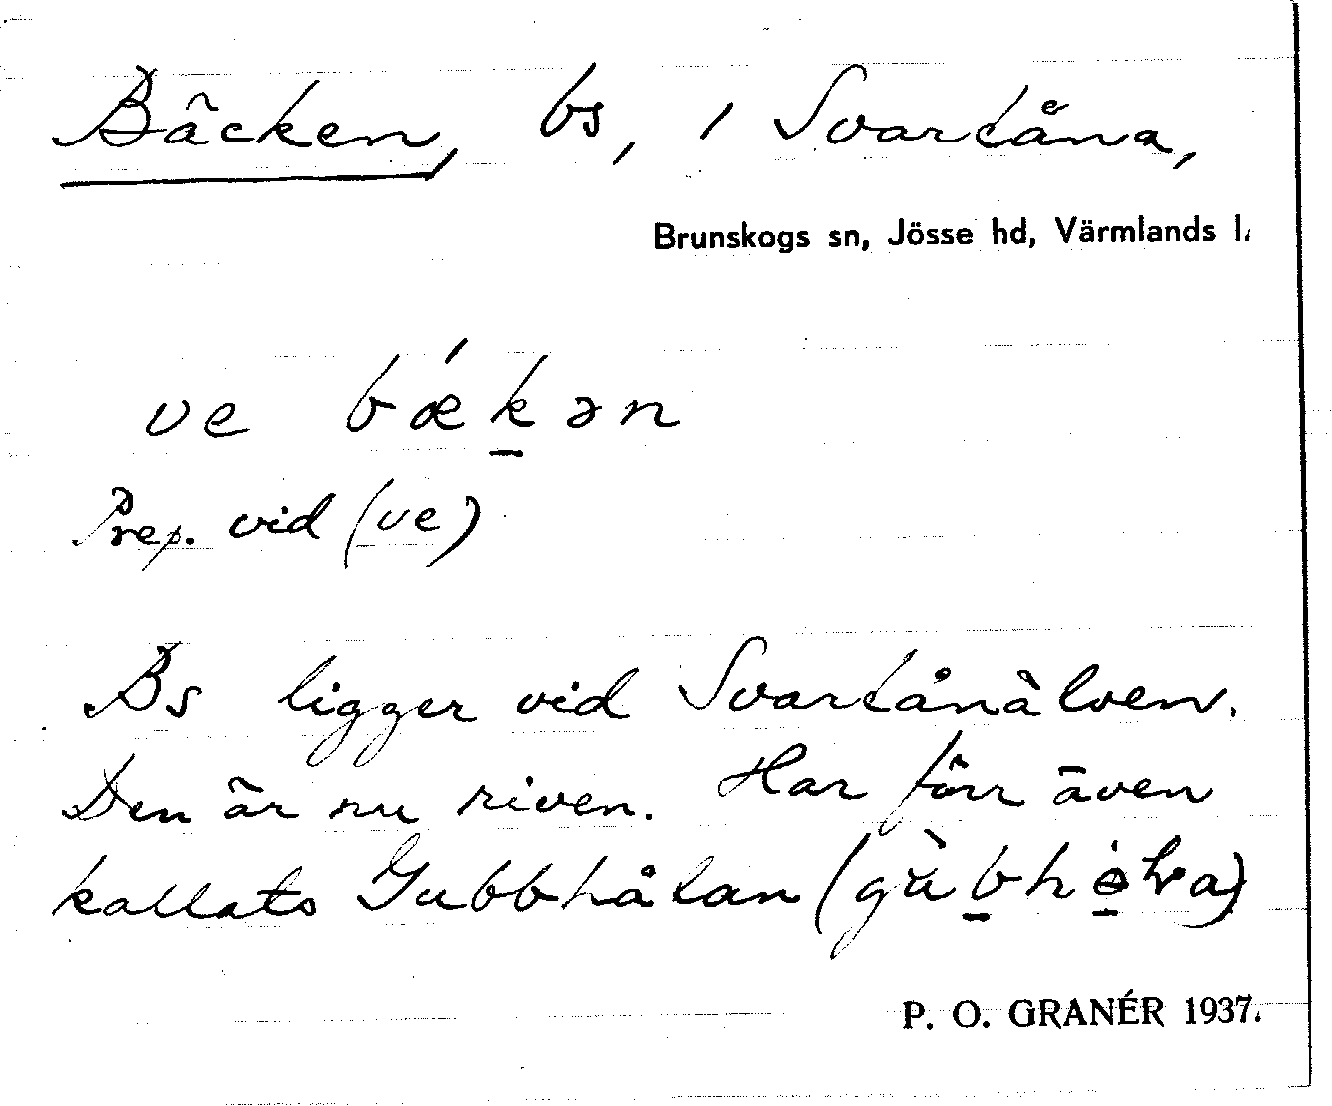 Bäcken, bs, i Svartåna,
Brunskogs sn, Jösse hd, Värmlands l.
ve bǽk̲ən
Prep. vid (ve)
Bs ligger vid Svartånälven.
Den är nu riven. Har förr även
kallats Gubbhålan
P. O. GRANÉR 1937.